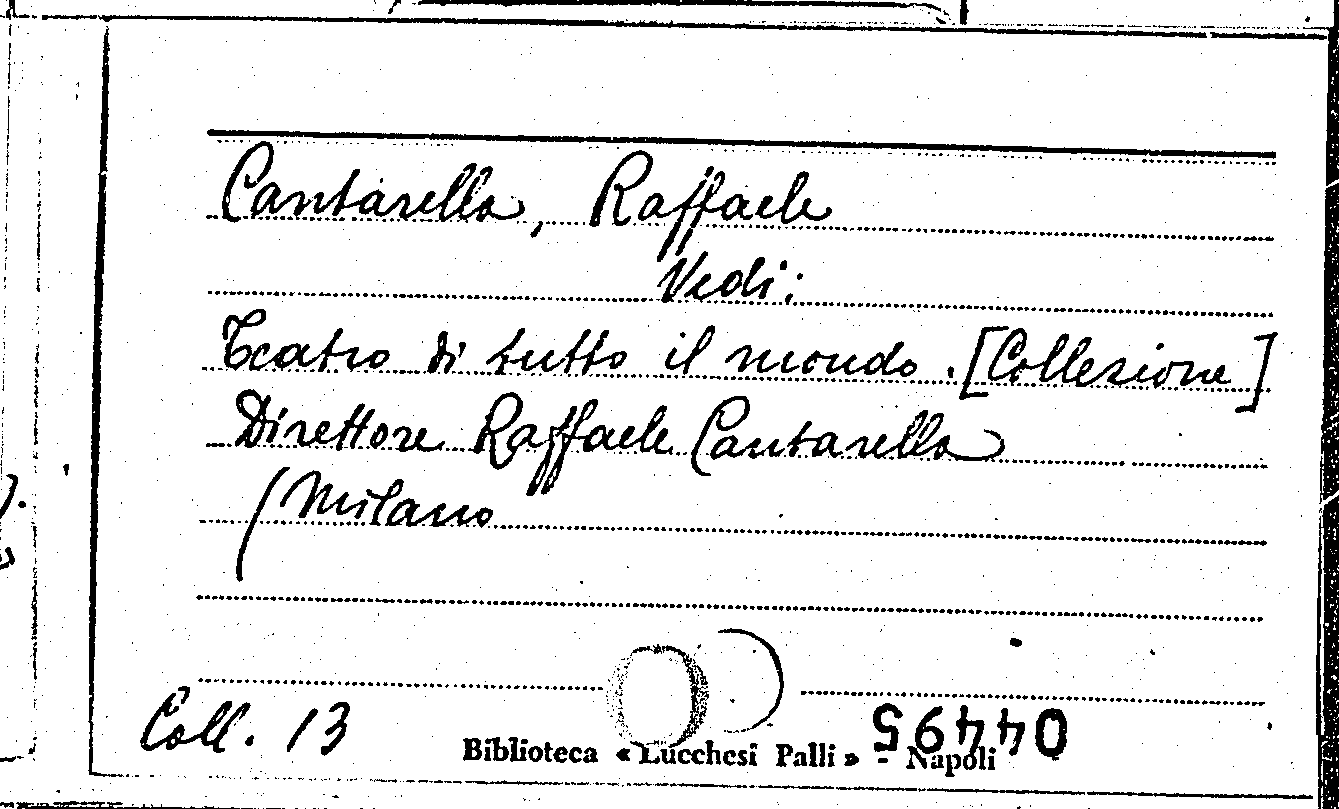 Cantarella, Raffaele
Vedi:
Teatro di tutto il mondo. [Collezione]
Direttore Raffaele Cantarella
(Milano
Coll. 13
04495
Biblioteca « Lucchesi Palli » - Napoli